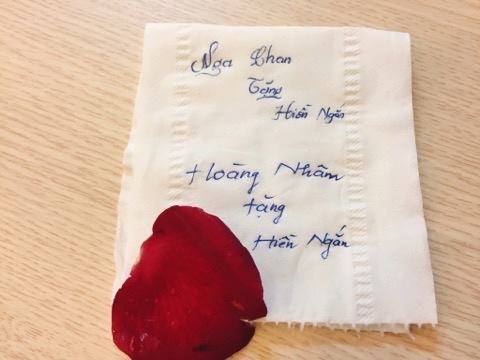 Nga Chan
Tặng
Hiền Ngắn
Hoàng Nhâm
tặng
Hiền Ngắn